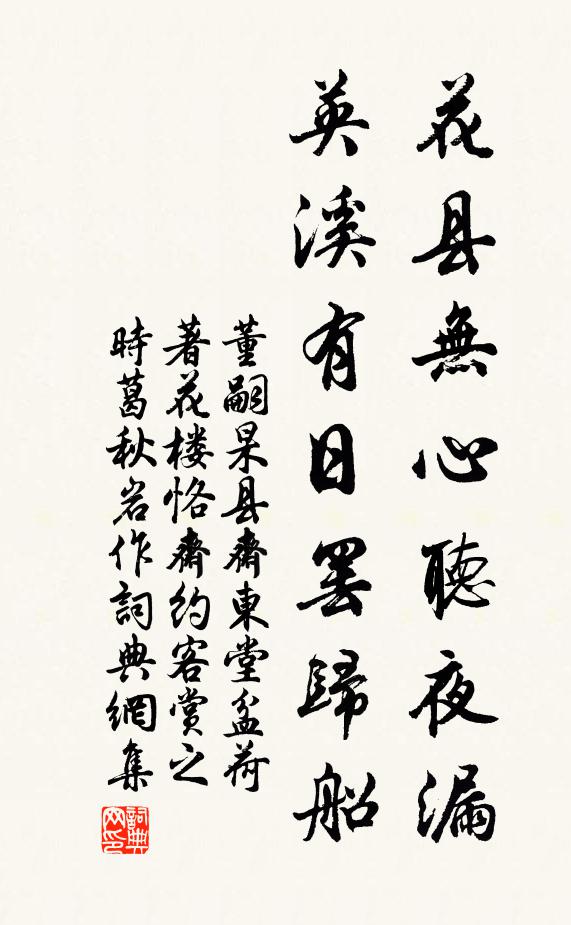 花县無心聽夜漏
英溪有日罢歸船
董嗣杲县齋東堂盆荷
著花楼恪齋約客賞之
時葛秋岩作詞典網集
詞典网印